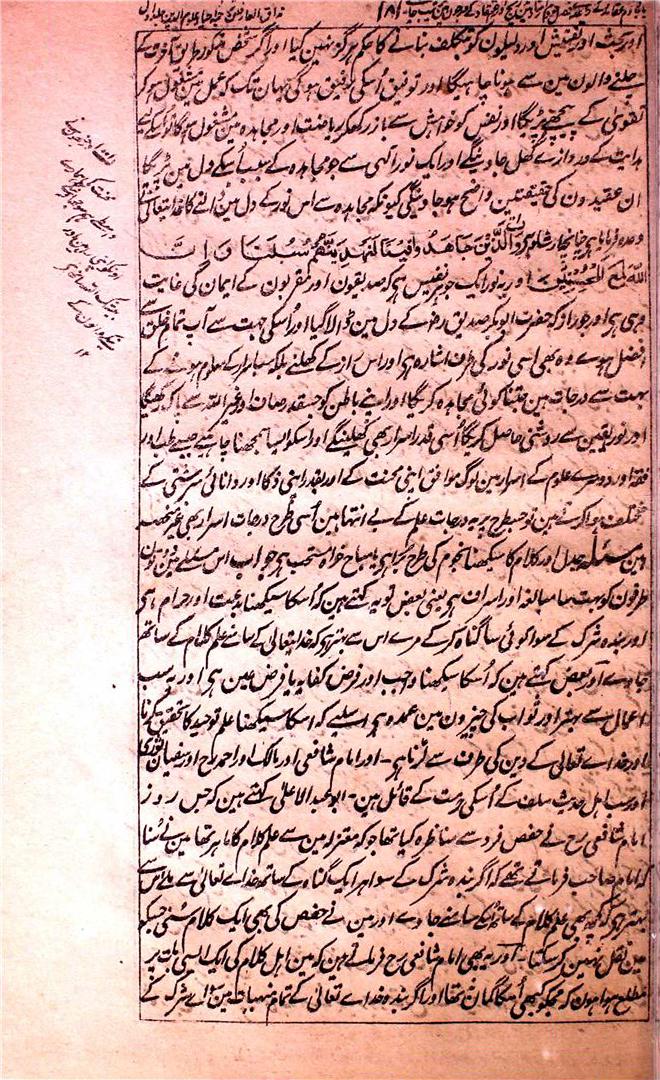 اور بحث اور تفتیش اور دلیلوں کو تکلف بنانے کا حکم ہرگز نہین کیا اور اگر شخص مذکور طریق آخرت کے
چلنے والون مین سے ہونا چاہیگا اور توفیق اُسکی رفیق ہوگی یہان تک کہ عمل مین مشغول ہو کر
تقویٰ کے پیچھے پڑیگا اور نفس کو خواہش سے باز رکھکر ریاضت اور مجاہدہ مین مشغول ہوگا تو اسکے لیے
ہدایت کے دروازے کھل جاوینگے اور ایک نور الٰہی سے جو مجاہدہ کے سبب اُسکے دل مین پڑیگا
ان عقیدون کی حقیقتین واضح ہو جاوینگی کیونکہ مجاہدہ سے اس نور کے دل مین ڈالنے کا خدا تعالیٰ نے
وعدہ فرمایا ہے چنانچہ ارشاد ہے وَالَّذِيْنَ جَاهَدُوْا فِيْنَا لَنَهْدِيَنَّهُمْ سُبُلَنَا وَاِنَّ
اللّٰهَ لَمَعَ الْمُحْسِنِيْنَ اور یہ نور ایک جوہر نفیس ہے کہ صدیقون اور مقربون کے ایمان کی غایت
وہی ہے اور جو راز کہ حضرت ابوبکر صدیق رض کے دل مین ڈالا گیا اور اُسکی جہت سے آپ تمام خلق سے
افضل ہوے وہ بھی اسی نور کی طرف اشارہ ہے اور اس راز کے کھلنے بلکہ سب اسرار کے معلوم ہونے کے
بہت سے درجات ہین جتنا کوئی مجاہدہ کریگا اور اپنے باطن کو جسقدر صاف اور غیر اللہ سے پاک رکھیگا
اور نور یقین سے روشنی حاصل کریگا اُسی قدر اسرار بھی کھلینگے اور اسکو ایسا سمجھنا چاہیے جیسے طب اور
فقہ اور دوسرے علوم کے اسرار مین لوگ موافق اپنی محنت کے اور بقدر اپنی ذکا اور دانائی سرشتی کے
مختلف ہوا کرتے ہین تو جسطرح پر یہ درجات علم کے بے انتہا ہین اُسی طرح درجات اسرار بھی غیر منحصر
ہین مسئلہ جدل اور کلام کا سیکھنا نجوم کی طرح بُرا ہے یا مباح خواہ مستحب ہے جواب اس مسئلے مین دونون
طرفون کو بہت سا مبالغہ اور اسراف ہے یعنی بعض تو یہ کہتے ہین کہ اُسکا سیکھنا بدعت اور حرام ہے
اور بندہ شرک کے سوا کوئی سا گناہ کر کے مرے اس سے بہتر ہے کہ خدا تعالیٰ کے سامنے علم کلام کے ساتھ
جاوے اور بعض کہتے ہین کہ اُسکا سیکھنا واجب اور فرض کفایہ یا فرض عین ہے اور یہ سب
اعمال سے بہتر اور ثواب کی چیزون مین عمدہ ہے اسلیے کہ اسکا سیکھنا علم توحید کا تحقیق کرنا
اور خداے تعالیٰ کے دین کی طرف سے لڑنا ہے ۔ اور امام شافعی اور مالک اور احمد رح اور سفیان ثوری
اور سب اہل حدیث سلف کے اُسکی حرمت کے قائل ہین ۔ ابو عبد الاعلیٰ کہتے ہین کہ جس روز
امام شافعی رح نے حفص فرد سے مناظرہ کیا تھا جو کہ معتزلہ مین سے علم کلام کا ماہر تھا مین نے سُنا
کہ امام صاحب فرماتے تھے کہ اگر بندہ شرک کے سوا ہر ایک گناہ کے ساتھ خداے تعالیٰ سے ملے اس سے
بہتر ہے کہ کچھ بھی علم کلام کے ساتھ اُسکے سامنے جاوے اور مین نے حفص کی بھی ایک کلام سُنی جسکو
مین نقل نہین کر سکتا ۔ اور یہ بھی امام شافعی رح فرماتے ہین کہ مین اہل کلام کی ایک ایسی بات پر
مطلع ہوا ہون کہ مجھکو کبھی اُسکا گمان نہ تھا اور اگر بندہ خداے تعالیٰ کے تمام منہیات مین سواے شرک کے